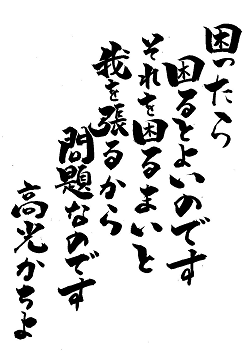 困ったら
困るとよいのです
それを困るまいと
我を張るから
問題なのです
高光かちよ